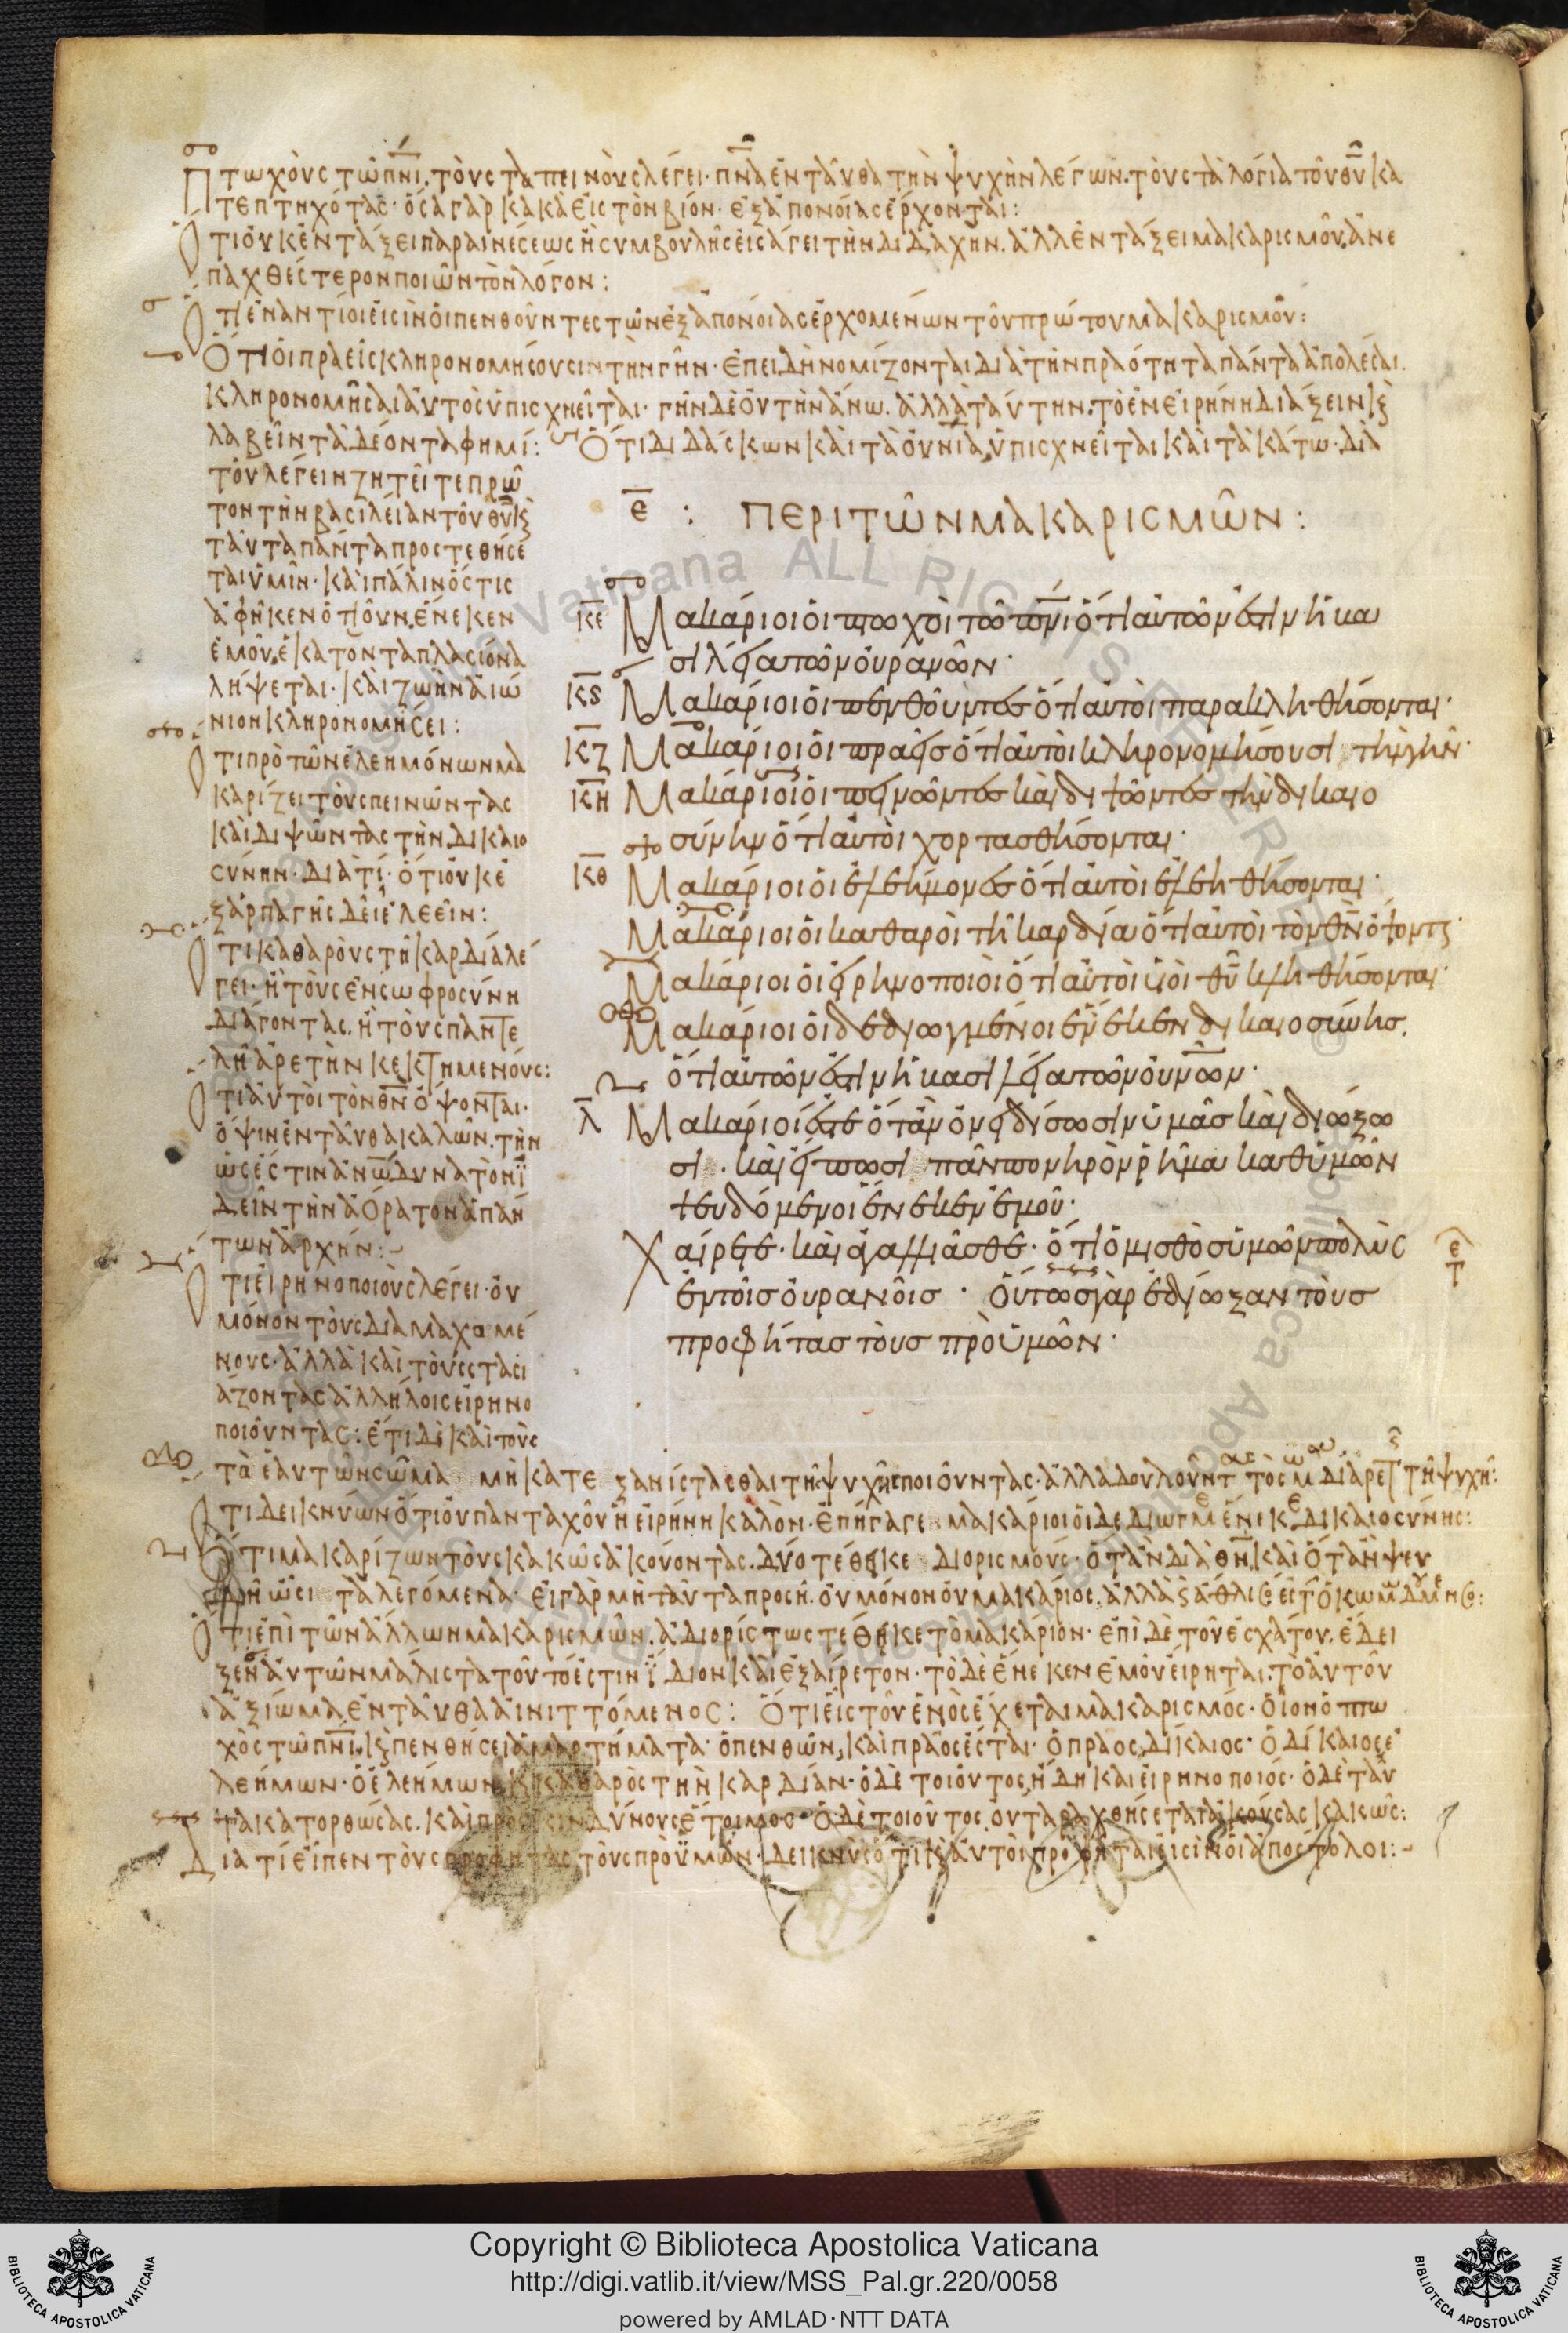 Πτωχοὺς τῶ πνι. τοὺς ταπεινοὺς λέγει· πνα ἐνταῦθα τὴν ψυχὴν λέγων. τοὺς τὰ λόγια τοῦ θυ κα
τεπτηχότας· ὅσα γὰρ κακὰ εἰς τὸν βίον· ἐξ ἀπονοίας ἔρχονται:
Ὅτι οὐκ ἐν τάξει παραινέσεως ἢ συμβουλῆς εἰσάγει τὴν διδαχήν. ἀλλ' ἐν τάξει μακαρισμοῦ. ἀνε
παχθέστερον ποιῶν τὸν λόγον:
Ὅτι ἐναντίοι εἰσὶν οἱ πενθοῦντες τῶν ἐξ ἀπονοίας ἐρχομένων τοῦ πρώτου μακαρισμοῦ:
Ὅτι οἱ πραεῖς κληρονομήσουσιν τὴν γῆν· ἐπειδὴ νομίζονται διὰ τὴν πραότητα πάντα ἀπολέσαι.
κληρονομῆσαι αὐτὸς ὑπισχνεῖται· γῆν δὲ οὐ τὴν ἄνω. ἀλλὰ ταύτην. τὸ ἐν εἰρήνη διάξειν κ
λαβεῖν τὰ δέοντα φημί: Ὅτι διδάσκων καὶ τὰ οὐνια, ὑπισχνεῖται καὶ τὰ κάτω· διὰ
τοῦ λέγειν ζητεῖτε πρῶ
τον τὴν βασιλείαν τοῦ θυ κ
ταῦτα πάντα προστεθήσε
ται ὑμῖν· καὶ πάλιν ὅστις
ἀφῆκεν ὁτιοῦν. ἕνεκεν
ἐμοῦ, ἑκατονταπλασίονα
λήψεται· καὶ ζωὴν αἰώ
νιον κληρονομήσει:
Ὅτι πρὸ τῶν ἐλεημόνων μα
καρίζει τοὺς πεινῶντας
καὶ διψῶντας τὴν δικαιο
σύνην· διὰ τί· ὅτι οὐκ ἐ
ξ ἁρπαγῆς δεῖ ἐλεεῖν:
Ὅτι καθαροὺς τῆ καρδία λέ
γει· ἢ τοὺς ἐν σωφροσύνη
διάγοντας. ἢ τοὺς παντε
λῆ ἀρετὴν κεκτημένους:
Ὅτι αὐτοὶ τὸν θν ὄψονται·
ὄψιν ἐνταῦθα καλῶν. τὴν
ὡς ἐστὶν ἀνω δυνατὸν ἰ
δεῖν τὴν ἀόρατον ἁπάν
των ἀρχήν:
Ὅτι εἰρηνοποιοὺς λέγει· οὐ
μόνον τοὺς διαμαχομέ
νους· ἀλλὰ καὶ τοὺς στασι
άζοντας ἀλλήλοις εἰρηνο
ποιοῦντας: ἔτι δὲ καὶ τοὺς
ε : ΠΕΡΙ ΤΩΝ ΜΑΚΑΡΙΣΜΩΝ:
κε Μακάριοι οἱ πτωχοὶ τῶ πνι ὅτι αὐτῶν ἐστιν ἡ βα
σιλεία τῶν οὐρανῶν·
κς Μακάριοι οἱ πενθοῦντες ὅτι αὐτοὶ παρακληθήσονται·
κζ Μακάριοι οἱ πραεῖς ὅτι αὐτοὶ κληρονομήσουσι τὴν γῆν·
κη Μακάριοι οἱ πεινῶντες καὶ διψῶντες τὴν δικαιο
σύνην ὅτι αὐτοὶ χορτασθήσονται·
κθ Μακάριοι οἱ ἐλεήμονες ὅτι αὐτοὶ ἐλεηθήσονται·
Μακάριοι οἱ καθαροὶ τῆ καρδία ὅτι αὐτοὶ τὸν θν ὄψοντ
Μακάριοι οἱ εἰρηνοποιοὶ ὅτι αὐτοὶ υἱοὶ θυ κληθήσονται·
Μακάριοι οἱ δεδιωγμένοι ἕνεκεν δικαιοσύνης.
ὅτι αὐτῶν ἐστιν ἡ βασιλεία τῶν οὐνων·
λ Μακάριοί ἐστε ὅταν ὀνειδίσωσιν ὑμᾶς καὶ διώξω
σι. καὶ εἴπωσι πᾶν πονηρὸν ῥῆμα καθ' ὑμῶν
ψευδόμενοι ἕνεκεν ἐμοῦ·
Χαίρετε· καὶ ἀγαλλιᾶσθε· ὅτι ὁ μισθὸς ὑμῶν πολὺς
ἐν τοῖς οὐρανοῖς· Οὕτως γὰρ ἐδίωξαν τοὺς
προφήτας τοὺς πρὸ ὑμῶν·
τὰ ἑαυτῶν σῶμα μὴ κατεξανίστασθαι τῆς ψυχῆς ποιοῦντας· ἀλλὰ δουλοῦντ
Ὅτι δεικνύων ὅτι οὐ πανταχοῦ ἡ εἰρήνη καλόν· ἐπήγαγε μακάριοι οἱ δεδιωγμ ἕνεκ δικαιοσύνης:
Ὅτι μακαρίζων τοὺς κακῶς ἀκούοντας. δύο τέθηκε διορισμούς· ὅταν διὰ θν. καὶ ὅταν ψευ
δῆ ὦσι τὰ λεγόμενα· εἰ γὰρ μὴ ταῦτα προσῆ. οὐ μόνον οὐ μακάριος. ἀλλὰ
Ὅτι ἐπὶ τῶν ἄλλων μακαρισμῶν. ἀδιορίστως τέθηκε τὸ μακάριον· ἐπὶ δὲ τοῦ ἐσχάτου. ἔδει
ξεν αὐτῶν μάλιστα τοῦτό ἐστιν ἴδιον καὶ ἐξαίρετον· τὸ δὲ ἕνεκεν ἐμοῦ εἴρηται. τὸ αὐτοῦ
ἀξίωμα ἐνταῦθα αἰνιττόμενος: Ὅτι εἷς τοῦ ἑνὸς ἔχεται μακαρισμός· οἷον ὁ πτω
χὸς τῶ πνι. κ πενθήσει ἁμαρτήματα· ὁ πενθῶν, καὶ πρᾶος ἔσται· ὁ πρᾶος, δίκαιος· ὁ δίκαιος ἐ
λεήμων· ὁ ἐλεήμων, κ καθαρὸς τὴν καρδίαν· ὁ δὲ τοιοῦτος, ἤδη καὶ εἰρηνοποιός· ὁ δὲ ταῦ
τα κατορθώσας. καὶ πρὸς κινδύνους ἕτοιμος· ὁ δὲ τοιοῦτος. οὐ ταραχθήσεται ἀκούσας κακῶς:
Διατί εἶπεν τοὺς προφήτας τοὺς πρὸ ὑμῶν· δεικνὺς ὅτι κ αὐτοὶ προφῆται εἰσὶν οἱ ἀπόστολοι:
Copyright © Biblioteca Apostolica Vaticana
http://digi.vatlib.it/view/MSS_Pal.gr.220/0058
powered by AMLAD · NTT DATA
BIBLIOTECA APOSTOLICA VATICANA
BIBLIOTECA APOSTOLICA VATICANA